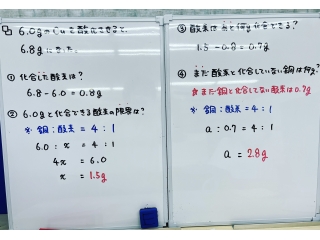 6.0gのCuを酸化させると、
6.8gになった。
① 化合した酸素は？
6.8 - 6.0 = 0.8g
② 6.0gと化合できる酸素の限界は？
※ 銅:酸素 = 4 : 1
6.0 : x = 4 : 1
4x = 6.0
x = 1.5g
③ 酸素はあと何g化合できる？
1.5 - 0.8 = 0.7g
④ まだ酸素と化合していない銅は何g？
まだ銅と化合してない酸素は0.7g
※ 銅:酸素 = 4 : 1
a : 0.7 = 4 : 1
a = 2.8g